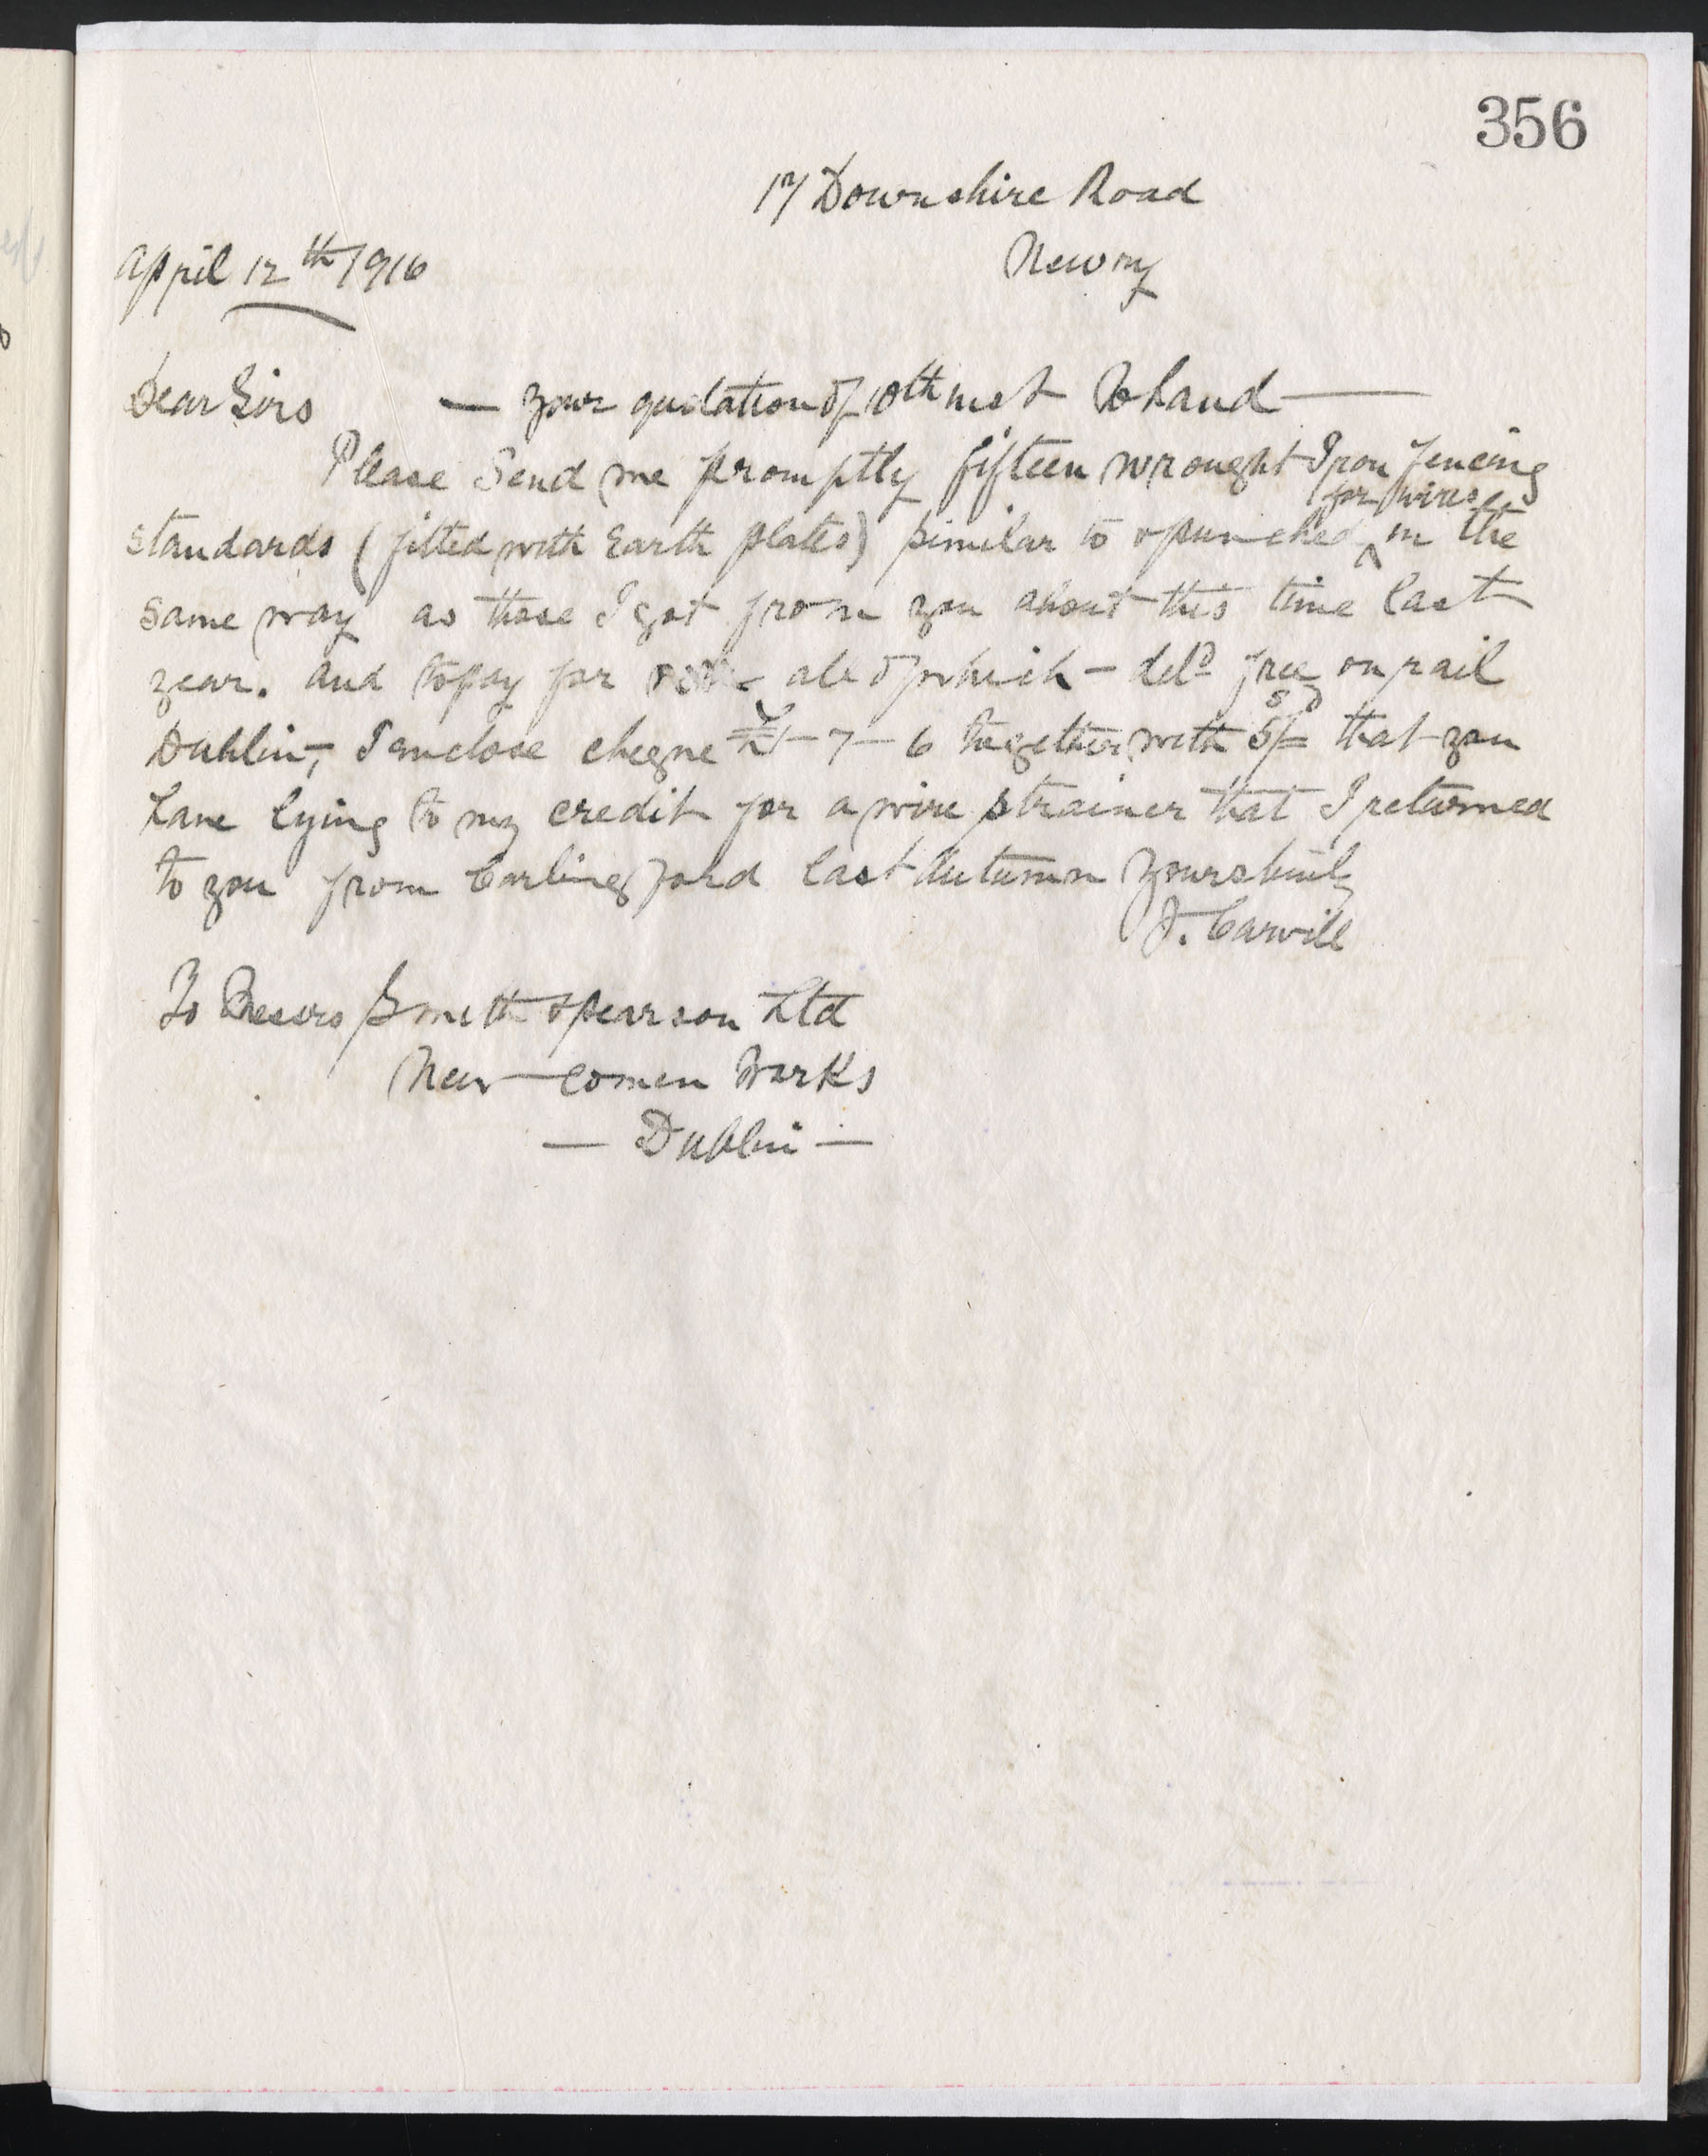 356
17 Downshire Road
Newry
April 12th 1916
Dear Sirs — your quotation of 10th inst to hand —
Please Send me promptly fifteen wrought Iron fencing
for wires
standards (fitted with Earth plates) similar to & punched ^ in the
same way as those I got from you about this time last
year. And to pay for all of which – deld free on rail
Dublin, I enclose cheque £1–7–6 together with 5/= that you
have lying to my credit for a wire strainer that I returned
to you from Carlingford last Autumn Yours truly
J. Carvill
To Messrs Smith & Pearson Ltd
New-comen Works
— Dublin —